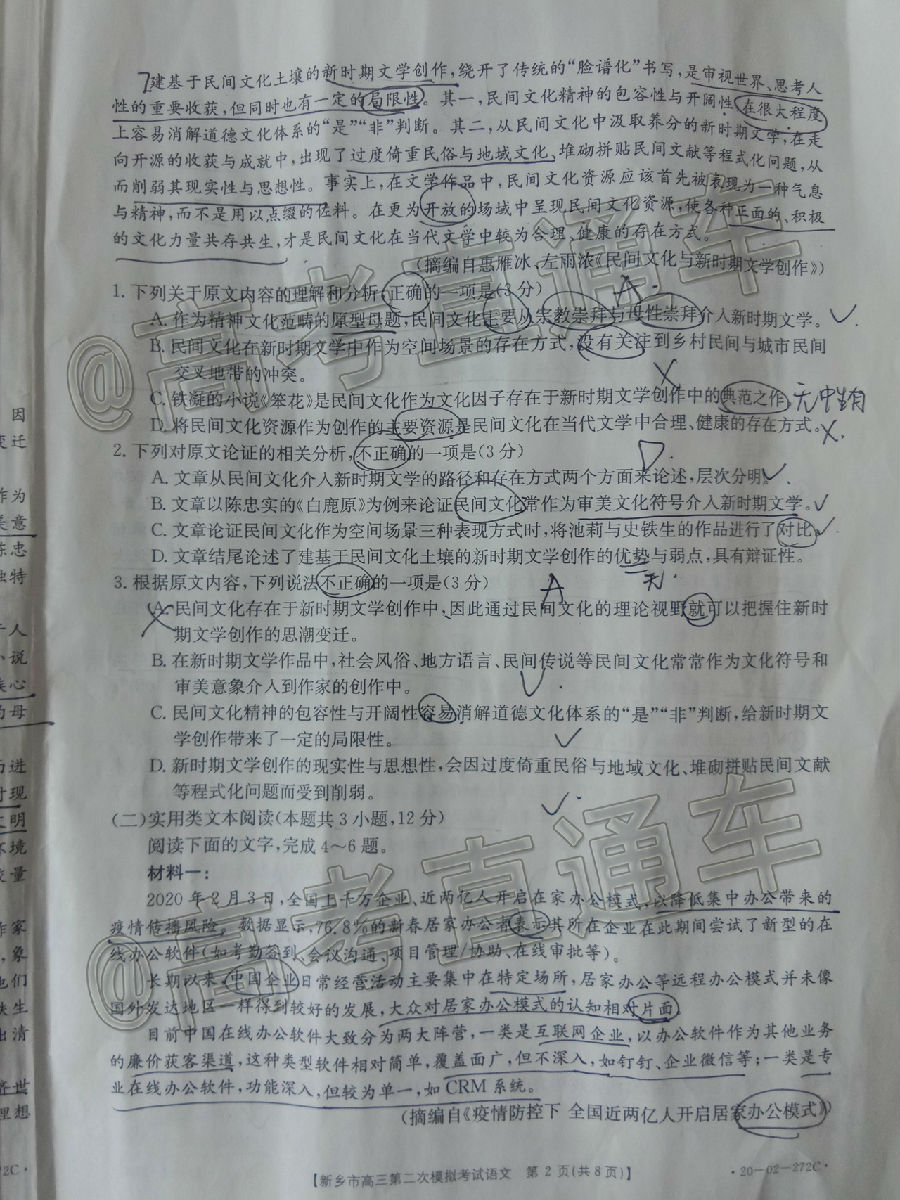 建基于民间文化土壤的新时期文学创作,绕开了传统的“脸谱化”书写,是审视世界、思考人
性的重要收获,但同时也有一定的局限性。其一,民间文化精神的包容性与开阔性,在很大程度
上容易消解道德文化体系的“是”“非”判断。其二,从民间文化中汲取养分的新时期文学,在走
向开源的收获与成就中,出现了过度倚重民俗与地域文化,堆砌拼贴民间文献等程式化问题,从
而削弱其现实性与思想性。事实上,在文学作品中,民间文化资源应该首先被表现为一种气息
与精神,而不是用以点缀的佐料。在更为开放的场域中呈现民间文化资源,使各种正面的、积极
的文化力量共存共生,才是民间文化在当代文学中较为合理、健康的存在方式。
(摘编自惠雁冰、左雨浓《民间文化与新时期文学创作》)
1. 下列关于原文内容的理解和分析,正确的一项是(3分)
A
A. 作为精神文化范畴的原型母题,民间文化主要从宗教崇拜与母性崇拜介入新时期文学。
B. 民间文化在新时期文学中作为空间场景的存在方式,没有关注到乡村民间与城市民间
交叉地带的冲突。
C. 铁凝的小说《笨花》是民间文化作为文化因子存在于新时期文学创作中的典范之作。
无中生有
D. 将民间文化资源作为创作的主要资源是民间文化在当代文学中合理、健康的存在方式。
2. 下列对原文论证的相关分析,不正确的一项是(3分)
D
A. 文章从民间文化介入新时期文学的路径和存在方式两个方面来论述,层次分明。
B. 文章以陈忠实的《白鹿原》为例来论证民间文化常作为审美文化符号介入新时期文学。
C. 文章论证民间文化作为空间场景三种表现方式时,将池莉与史铁生的作品进行了对比。
D. 文章结尾论述了建基于民间文化土壤的新时期文学创作的优势与弱点,具有辩证性。
3. 根据原文内容,下列说法不正确的一项是(3分)
A
A. 民间文化存在于新时期文学创作中,因此通过民间文化的理论视野就可以把握住新时
期文学创作的思潮变迁。
B. 在新时期文学作品中,社会风俗、地方语言、民间传说等民间文化常常作为文化符号和
审美意象介入到作家的创作中。
C. 民间文化精神的包容性与开阔性容易消解道德文化体系的“是”“非”判断,给新时期文
学创作带来了一定的局限性。
D. 新时期文学创作的现实性与思想性,会因过度倚重民俗与地域文化、堆砌拼贴民间文献
等程式化问题而受到削弱。
(二)实用类文本阅读(本题共3小题,12分)
阅读下面的文字,完成4～6题。
材料一:
2020年2月3日,全国上千万企业、近两亿人开启在家办公模式,以降低集中办公带来的
疫情传播风险。数据显示,76.8%的新春居家办公者表示其所在企业在此期间尝试了新型的在
线办公软件(如考勤签到、会议沟通、项目管理/协助、在线审批等)。
长期以来,中国企业日常经营活动主要集中在特定场所,居家办公等远程办公模式并未像
国外发达地区一样得到较好的发展,大众对居家办公模式的认知相对片面。
目前中国在线办公软件大致分为两大阵营,一类是互联网企业,以办公软件作为其他业务
的廉价获客渠道,这种类型软件相对简单,覆盖面广,但不深入,如钉钉、企业微信等;一类是专
业在线办公软件,功能深入,但较为单一,如CRM系统。
(摘编自《疫情防控下 全国近两亿人开启居家办公模式》)
【新乡市高三第二次模拟考试语文 第2页(共8页)】
·20-02-272C·
@高考直通车
@高考直通车
因
变迁
作为
美意
陈忠
独特
人
小说
核心
的母
与进
讨现
文明
环境
较量
作家
象
他们
铁生
出清
济世
理想
72C·